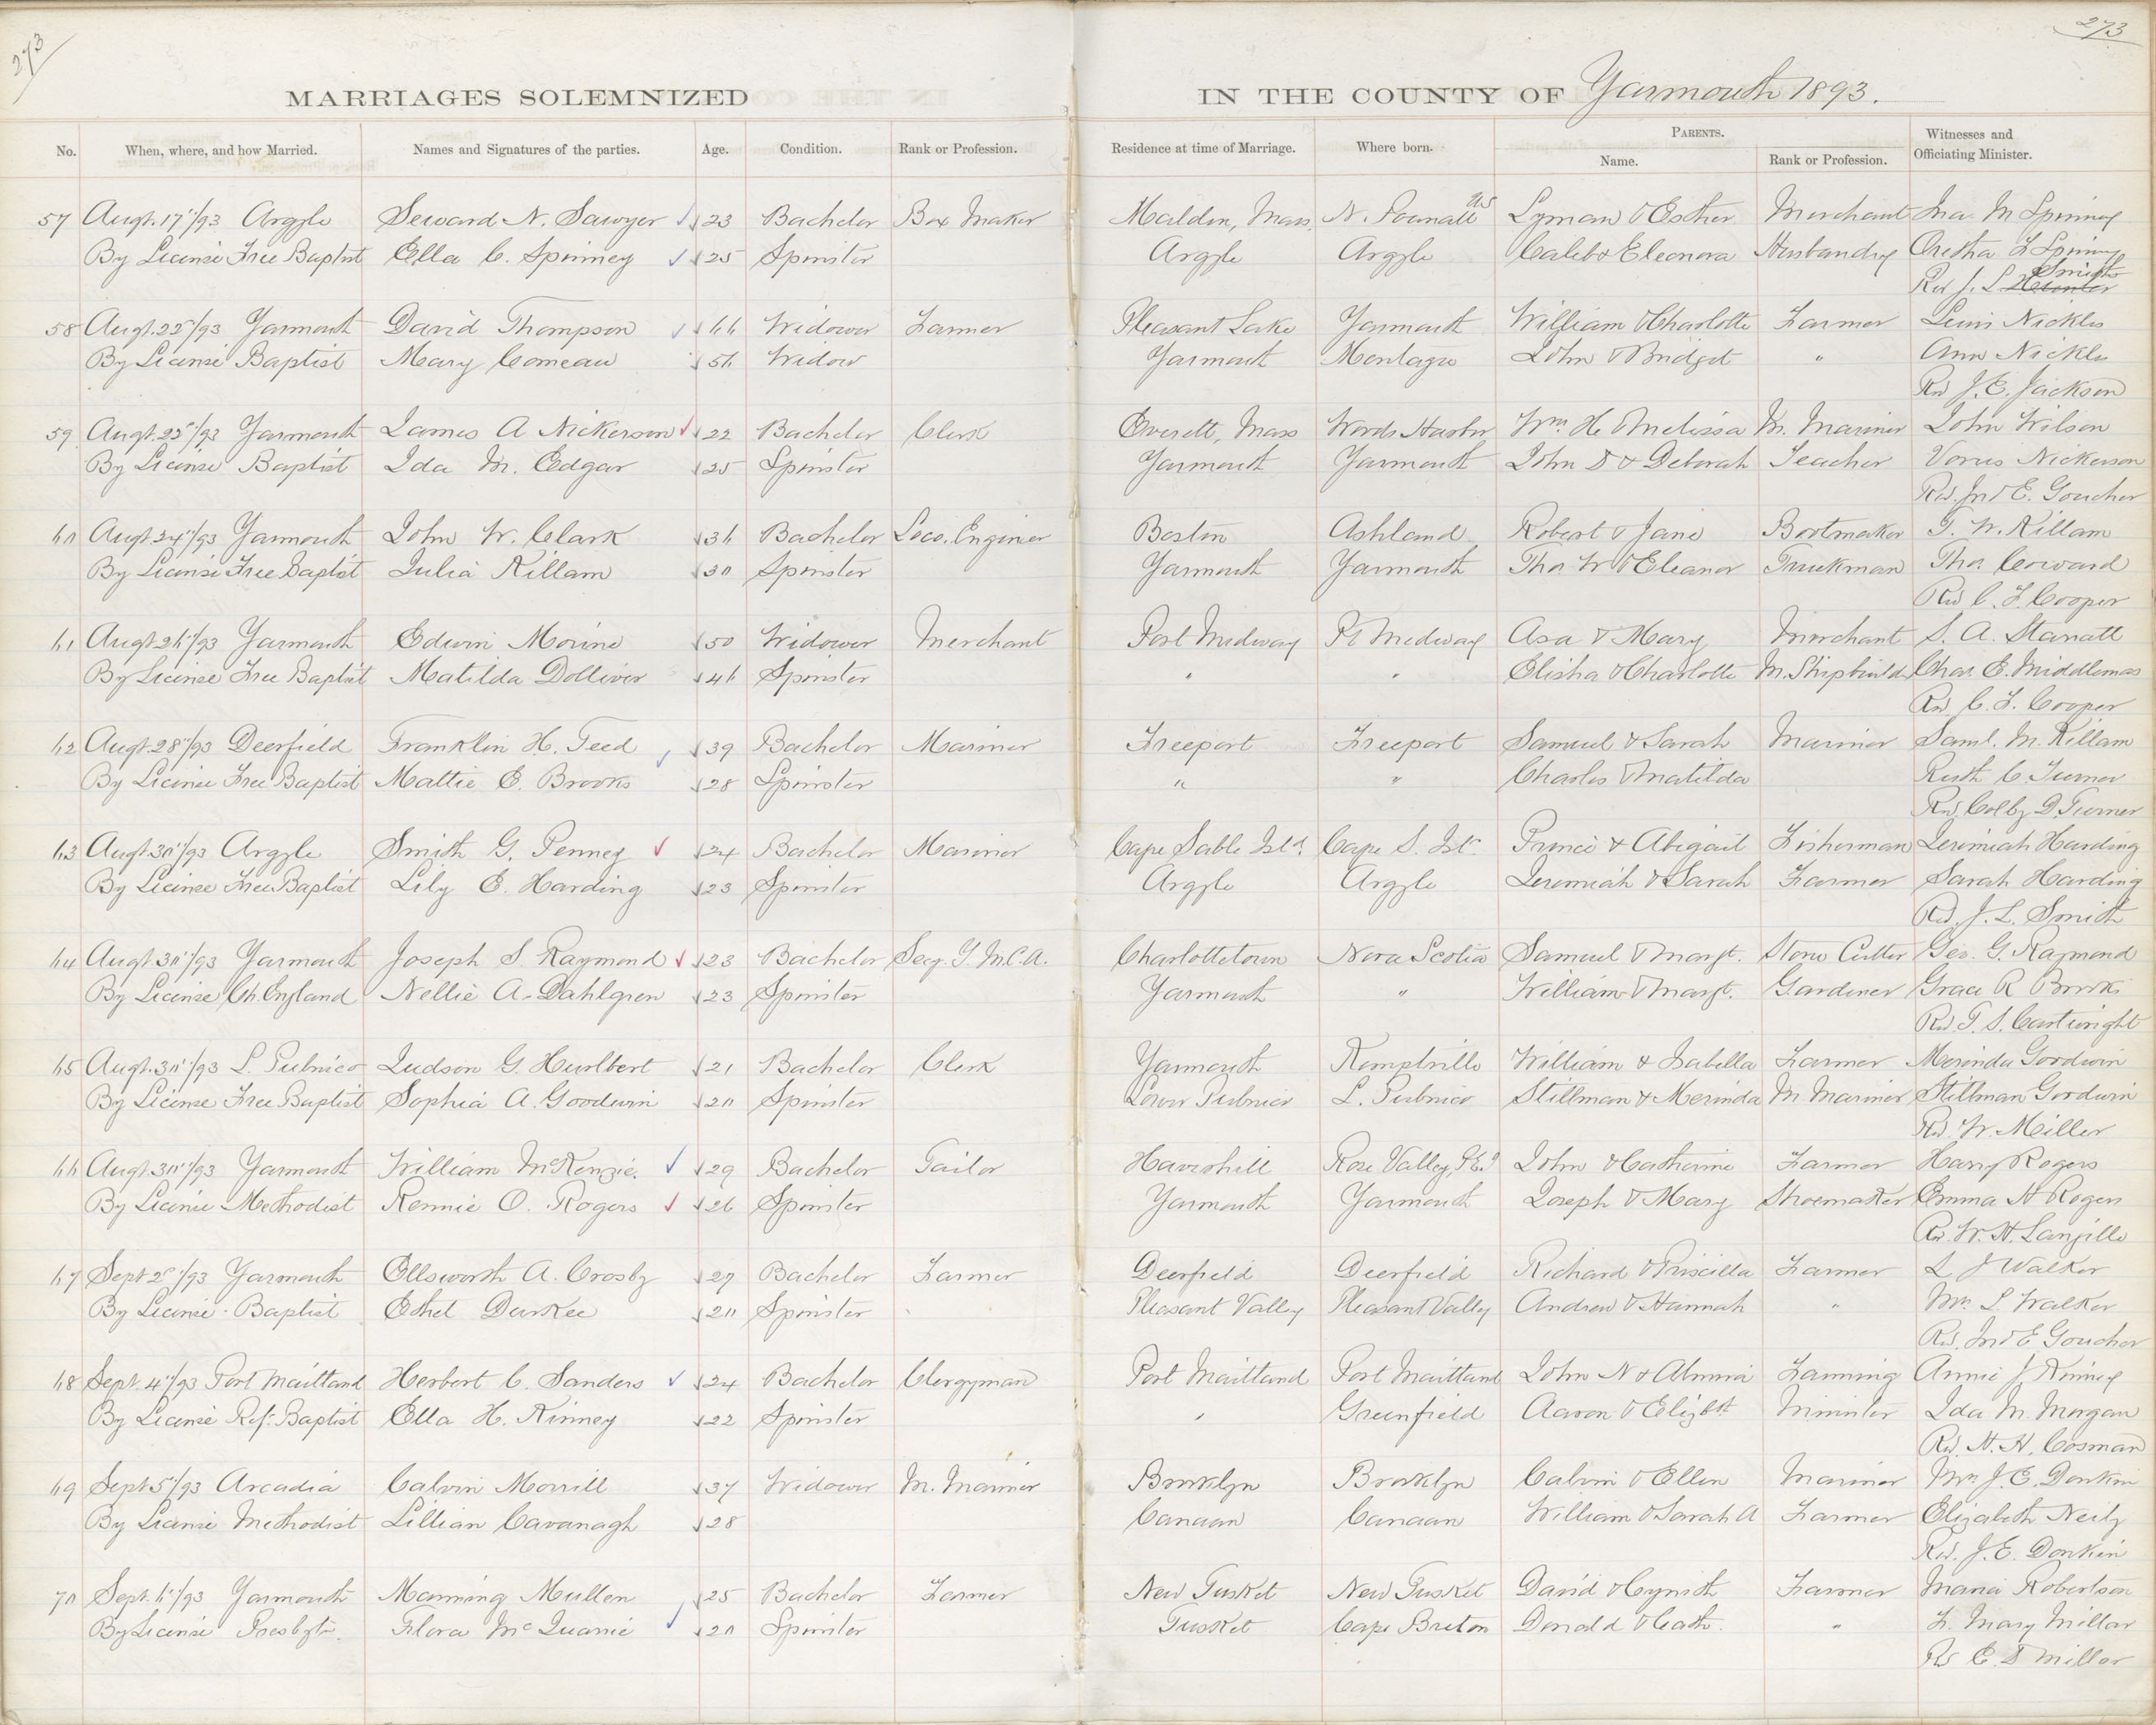 273
273
MARRIAGES SOLEMNIZED IN THE COUNTY OF Yarmouth 1893.
No. When, where, and how Married. Names and Signatures of the parties. Age. Condition. Rank or Profession. Residence at time of Marriage. Where born. PARENTS. Name. Rank or Profession. Witnesses and Officiating Minister.
57 Augt. 17"/93 Argyle Seward N. Sawyer 23 Bachelor Box Maker Malden, Mass. N. Pownall Lyman & Esther Merchant Ina M Spinney
By License Free Baptist Ella C. Spinney 25 Spinster Argyle Argyle Caleb & Eleonora Husbandry Cretha L Spinney
Smith
Rev J. L Hunter
58 Augt. 22"/93 Yarmouth David Thompson 66 Widower Farmer Pleasant Lake Yarmouth William & Charlotte Farmer Lewis Nickles
By License Baptist Mary Comeau 56 Widow Yarmouth Montague John & Bridget " Ann Nickles
Rev J. E. Jackson
59 Augt. 22"/93 Yarmouth James A Nickerson 22 Bachelor Clerk Everett, Mass Woods Harbor Wm. H & Melissa M. Mariner John Wilson
By License Baptist Ida M. Edgar 25 Spinster Yarmouth Yarmouth John D & Deborah Teacher Nickerson
Rev. Jno E. Goucher
60 Augt 24"/93 Yarmouth John W. Clark 36 Bachelor Loco. Engineer Boston Ashland Robert & Jane Bootmaker T. W. Killam
By License Free Baptist Julia Killam 30 Spinster Yarmouth Yarmouth Thos W & Eleanor Truckman Thos. Coward
Rev C. F. Cooper
61 Augt. 26"/93 Yarmouth Edwin Morine 50 Widower Merchant Port Medway Pt Medway Asa & Mary Merchant S. A. Stanatt
By License Free Baptist Matilda Dolliver 46 Spinster " " Elisha & Charlotte M. Shipbuilder Chas. E. Middlemas
Rev C. F. Cooper
62 Augt. 28"/93 Deerfield Franklin H. Teed 39 Bachelor Mariner Freeport Freeport Samuel & Sarah Mariner Saml. M. Killam
By License Free Baptist Mattie E. Brooks 28 Spinster " " Charles & Matilda Ruth C Turner
Rev. Colby D. Turner
63 Augt. 30"/93 Argyle Smith G. Penney 24 Bachelor Mariner Cape Sable Isld. Cape S. Isl. Prince & Abigail Fisherman Jeremiah Harding
By License Free Baptist Lily E. Harding 23 Spinster Argyle Argyle Jeremiah & Sarah Farmer Sarah Harding
Rev. J. L. Smith
64 Augt 30"/93 Yarmouth Joseph S. Raymond 23 Bachelor Secy. Y. M. C. A. Charlottetown Nova Scotia Samuel & Margt. Stone Cutter Geo. G. Raymond
By License Ch. England Nellie A. Dahlgren 23 Spinster Yarmouth " William & Margt. Gardener Grace R Brooks
Rev T. S. Cartwright
65 Augt. 30"/93 L. Pubnico Judson G. Hurlbert 21 Bachelor Clerk Yarmouth Kemptville William & Isabella Farmer Merinda Goodwin
By License Free Baptist Sophia A. Goodwin 20 Spinster Lower Pubnico L. Pubnico Stillman & Merinda M. Mariner Stillman Goodwin
Rev. W. Miller
66 Augt 30"/93 Yarmouth William McKenzie. 29 Bachelor Tailor Haverhill Rose Valley, P.E.I John & Catherine Farmer Harry Rogers
By License Methodist Rennie O. Rogers 26 Spinster Yarmouth Yarmouth Joseph & Mary Shoemaker Emma H Rogers
Rev. W. H. Langille
67 Sept 2"/93 Yarmouth Ellsworth A. Crosby 27 Bachelor Farmer Deerfield Deerfield Richard & Priscilla Farmer L. J Walker
By License Baptist Ethel Durkee 20 Spinster Pleasant Valley Pleasant Valley Andrew & Hannah " Mrs. L Walker
Rev. Jno E Goucher
68 Sept. 4"/93 Port Maitland Herbert C. Sanders 24 Bachelor Clergyman Port Maitland Port Maitland John N & Almira Farming Annie J Kinney
By License Ref. Baptist Ella H. Kinney 22 Spinster " Greenfield Aaron & Elizbth Minister Ida M. Morgan
Rev. H. H. Cosman
69 Sept 5"/93 Arcadia Calvin Morrill 37 Widower M. Mariner Brooklyn Brooklyn Calvin & Ellen Mariner Mrs J. E. Donkin
By License Methodist Lillian Cavanagh 28 Canaan Canaan William & Sarah A Farmer Elizabeth Neily
Rev. J. E. Donkin
70 Sept. 6"/93 Yarmouth Manning Mullen 25 Bachelor Farmer New Tusket New Tusket David & Cynith Farmer Maria Robertson
By License Presbytn. Flora McQuarrie 20 Spinster Tusket Cape Breton Donald & Cath. " F. Mary Millar
Rev E. D Millar